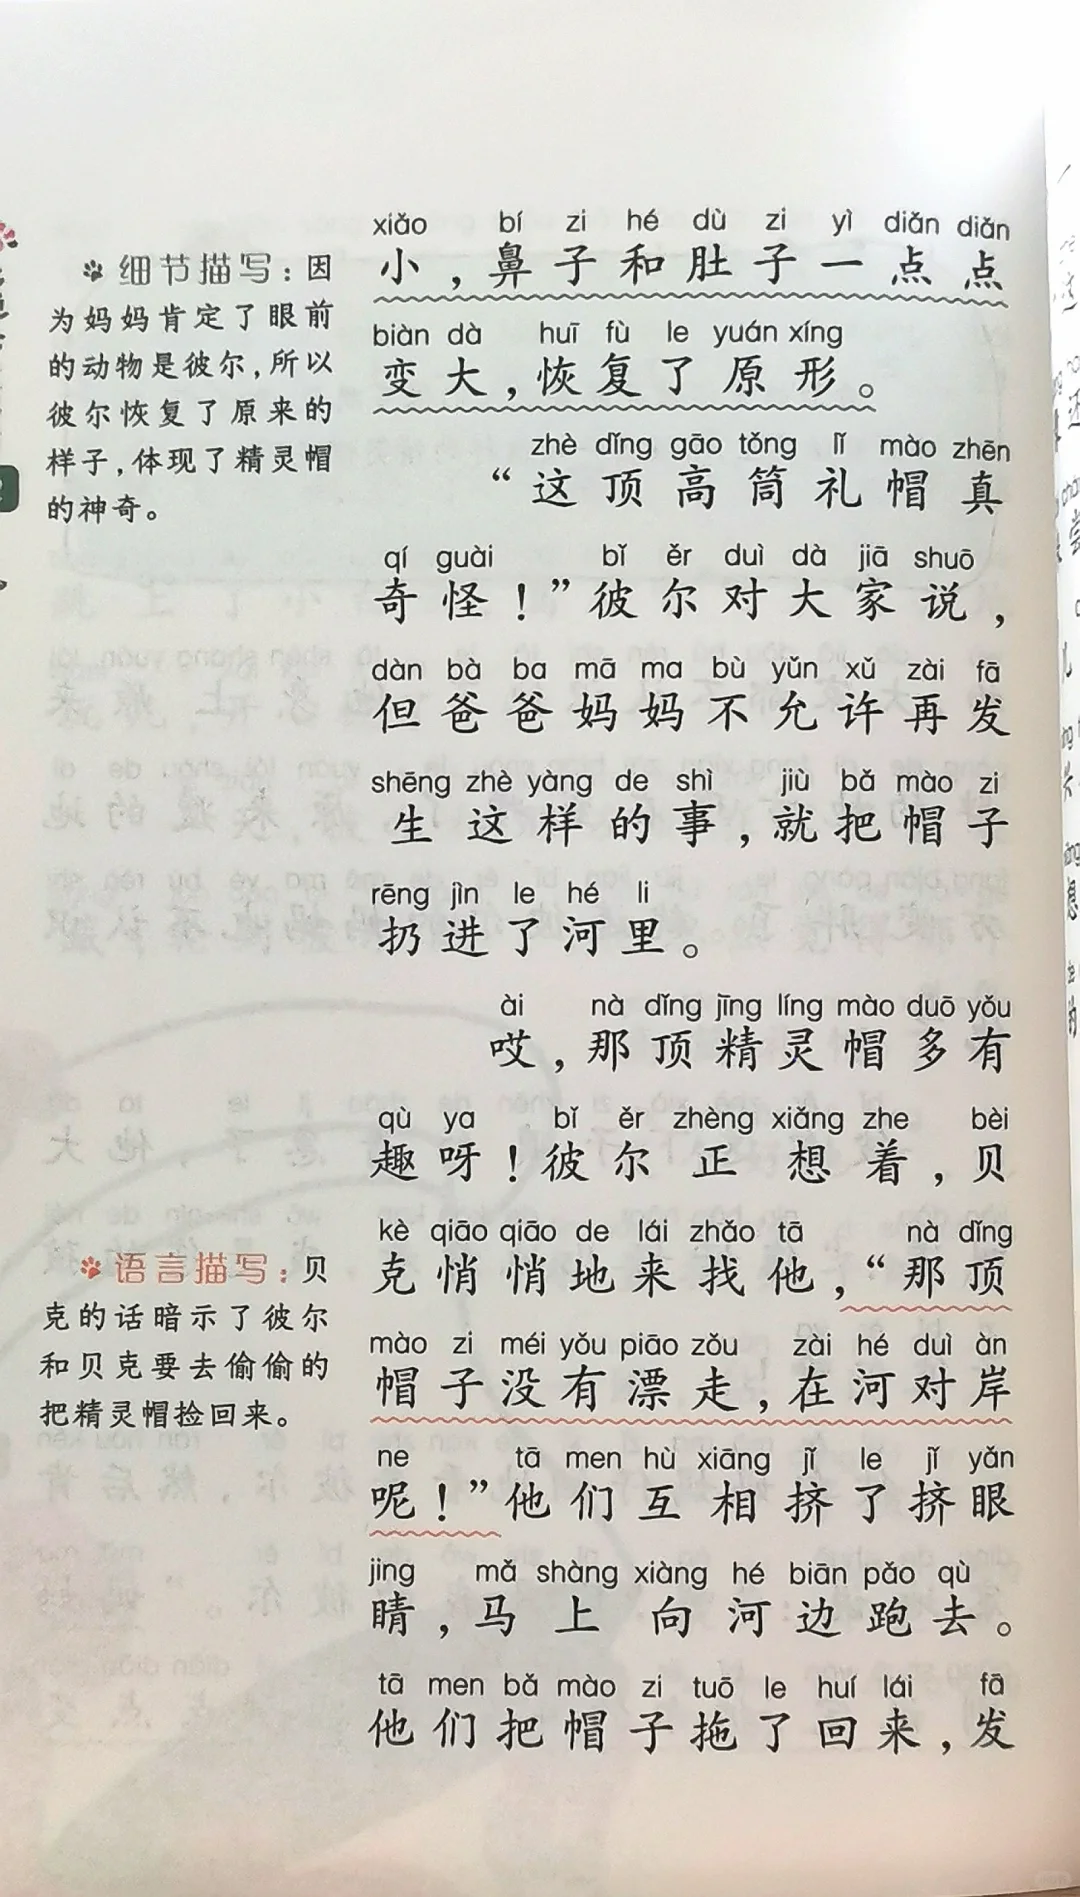 细节描写：因
为妈妈肯定了眼前
的动物是彼尔，所以
彼尔恢复了原来的
样子，体现了精灵帽
的神奇。
语言描写：贝
克的话暗示了彼尔
和贝克要去偷偷的
把精灵帽捡回来。
xiǎo bí zi hé dù zi yì diǎn diǎn
小，鼻子和肚子一点点
biàn dà huī fù le yuán xíng
变大，恢复了原形。
zhè dǐng gāo tǒng lǐ mào zhēn
“这顶高筒礼帽真
qí guài bǐ ěr duì dà jiā shuō
奇怪！”彼尔对大家说，
dàn bà ba mā ma bù yǔn xǔ zài fā
但爸爸妈妈不允许再发
shēng zhè yàng de shì jiù bǎ mào zi
生这样的事，就把帽子
rēng jìn le hé li
扔进了河里。
ài nà dǐng jīng líng mào duō yǒu
哎，那顶精灵帽多有
qù ya bǐ ěr zhèng xiǎng zhe bèi
趣呀！彼尔正想着，贝
kè qiāo qiāo de lái zhǎo tā nà dǐng
克悄悄地来找他，“那顶
mào zi méi yǒu piāo zǒu zài hé duì àn
帽子没有漂走，在河对岸
ne tā men hù xiāng jǐ le jǐ yǎn
呢！”他们互相挤了挤眼
jing mǎ shàng xiàng hé biān pǎo qù
睛，马上向河边跑去。
tā men bǎ mào zi tuō le huí lái fā
他们把帽子拖了回来，发